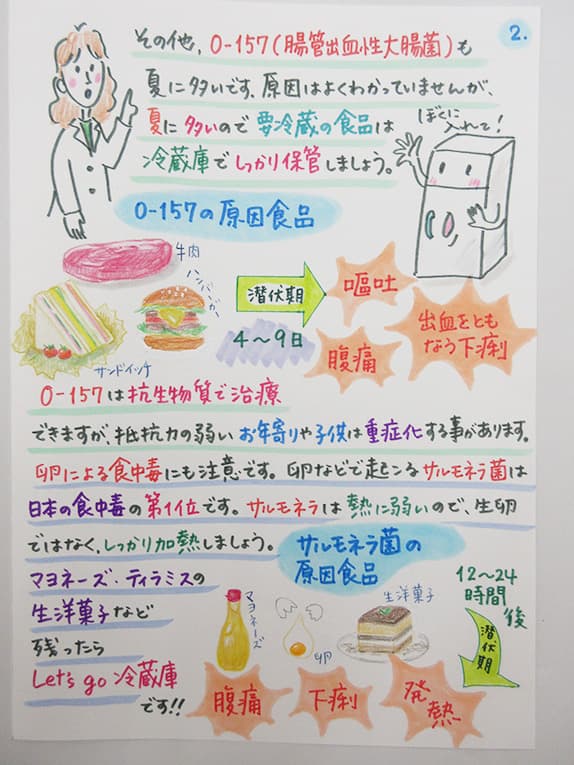 2.
その他、O-157(腸管出血性大腸菌)も
夏に多いです。原因はよくわかっていませんが、
夏に多いので要冷蔵の食品は
冷蔵庫でしっかり保管しましょう。
ぼくに
入れて!
O-157の原因食品
牛肉
ハンバーガー
サンドイッチ
潜伏期
4〜9日
嘔吐
腹痛
出血をとも
なう下痢
O-157は抗生物質で治療
できますが、抵抗力の弱いお年寄りや子供は重症化する事があります。
卵による食中毒にも注意です。卵などで起こるサルモネラ菌は
日本の食中毒の第1位です。サルモネラは熱に弱いので、生卵
ではなく、しっかり加熱しましょう。
サルモネラ菌の
原因食品
マヨネーズ・ティラミスの
生洋菓子など
残ったら
Let's go 冷蔵庫
です!!
マヨネーズ
卵
生洋菓子
12〜24
時間
後
潜伏期
腹痛
下痢
発熱